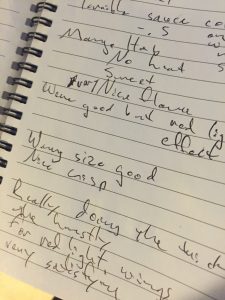 sauce co
. 5 on
Mango Hab
No heat
Sweet
Nice flavour
Were good but red lig
effect
Wing size good
Nice crisp
Really doing the
the honestly
for red light wings
very satisfying